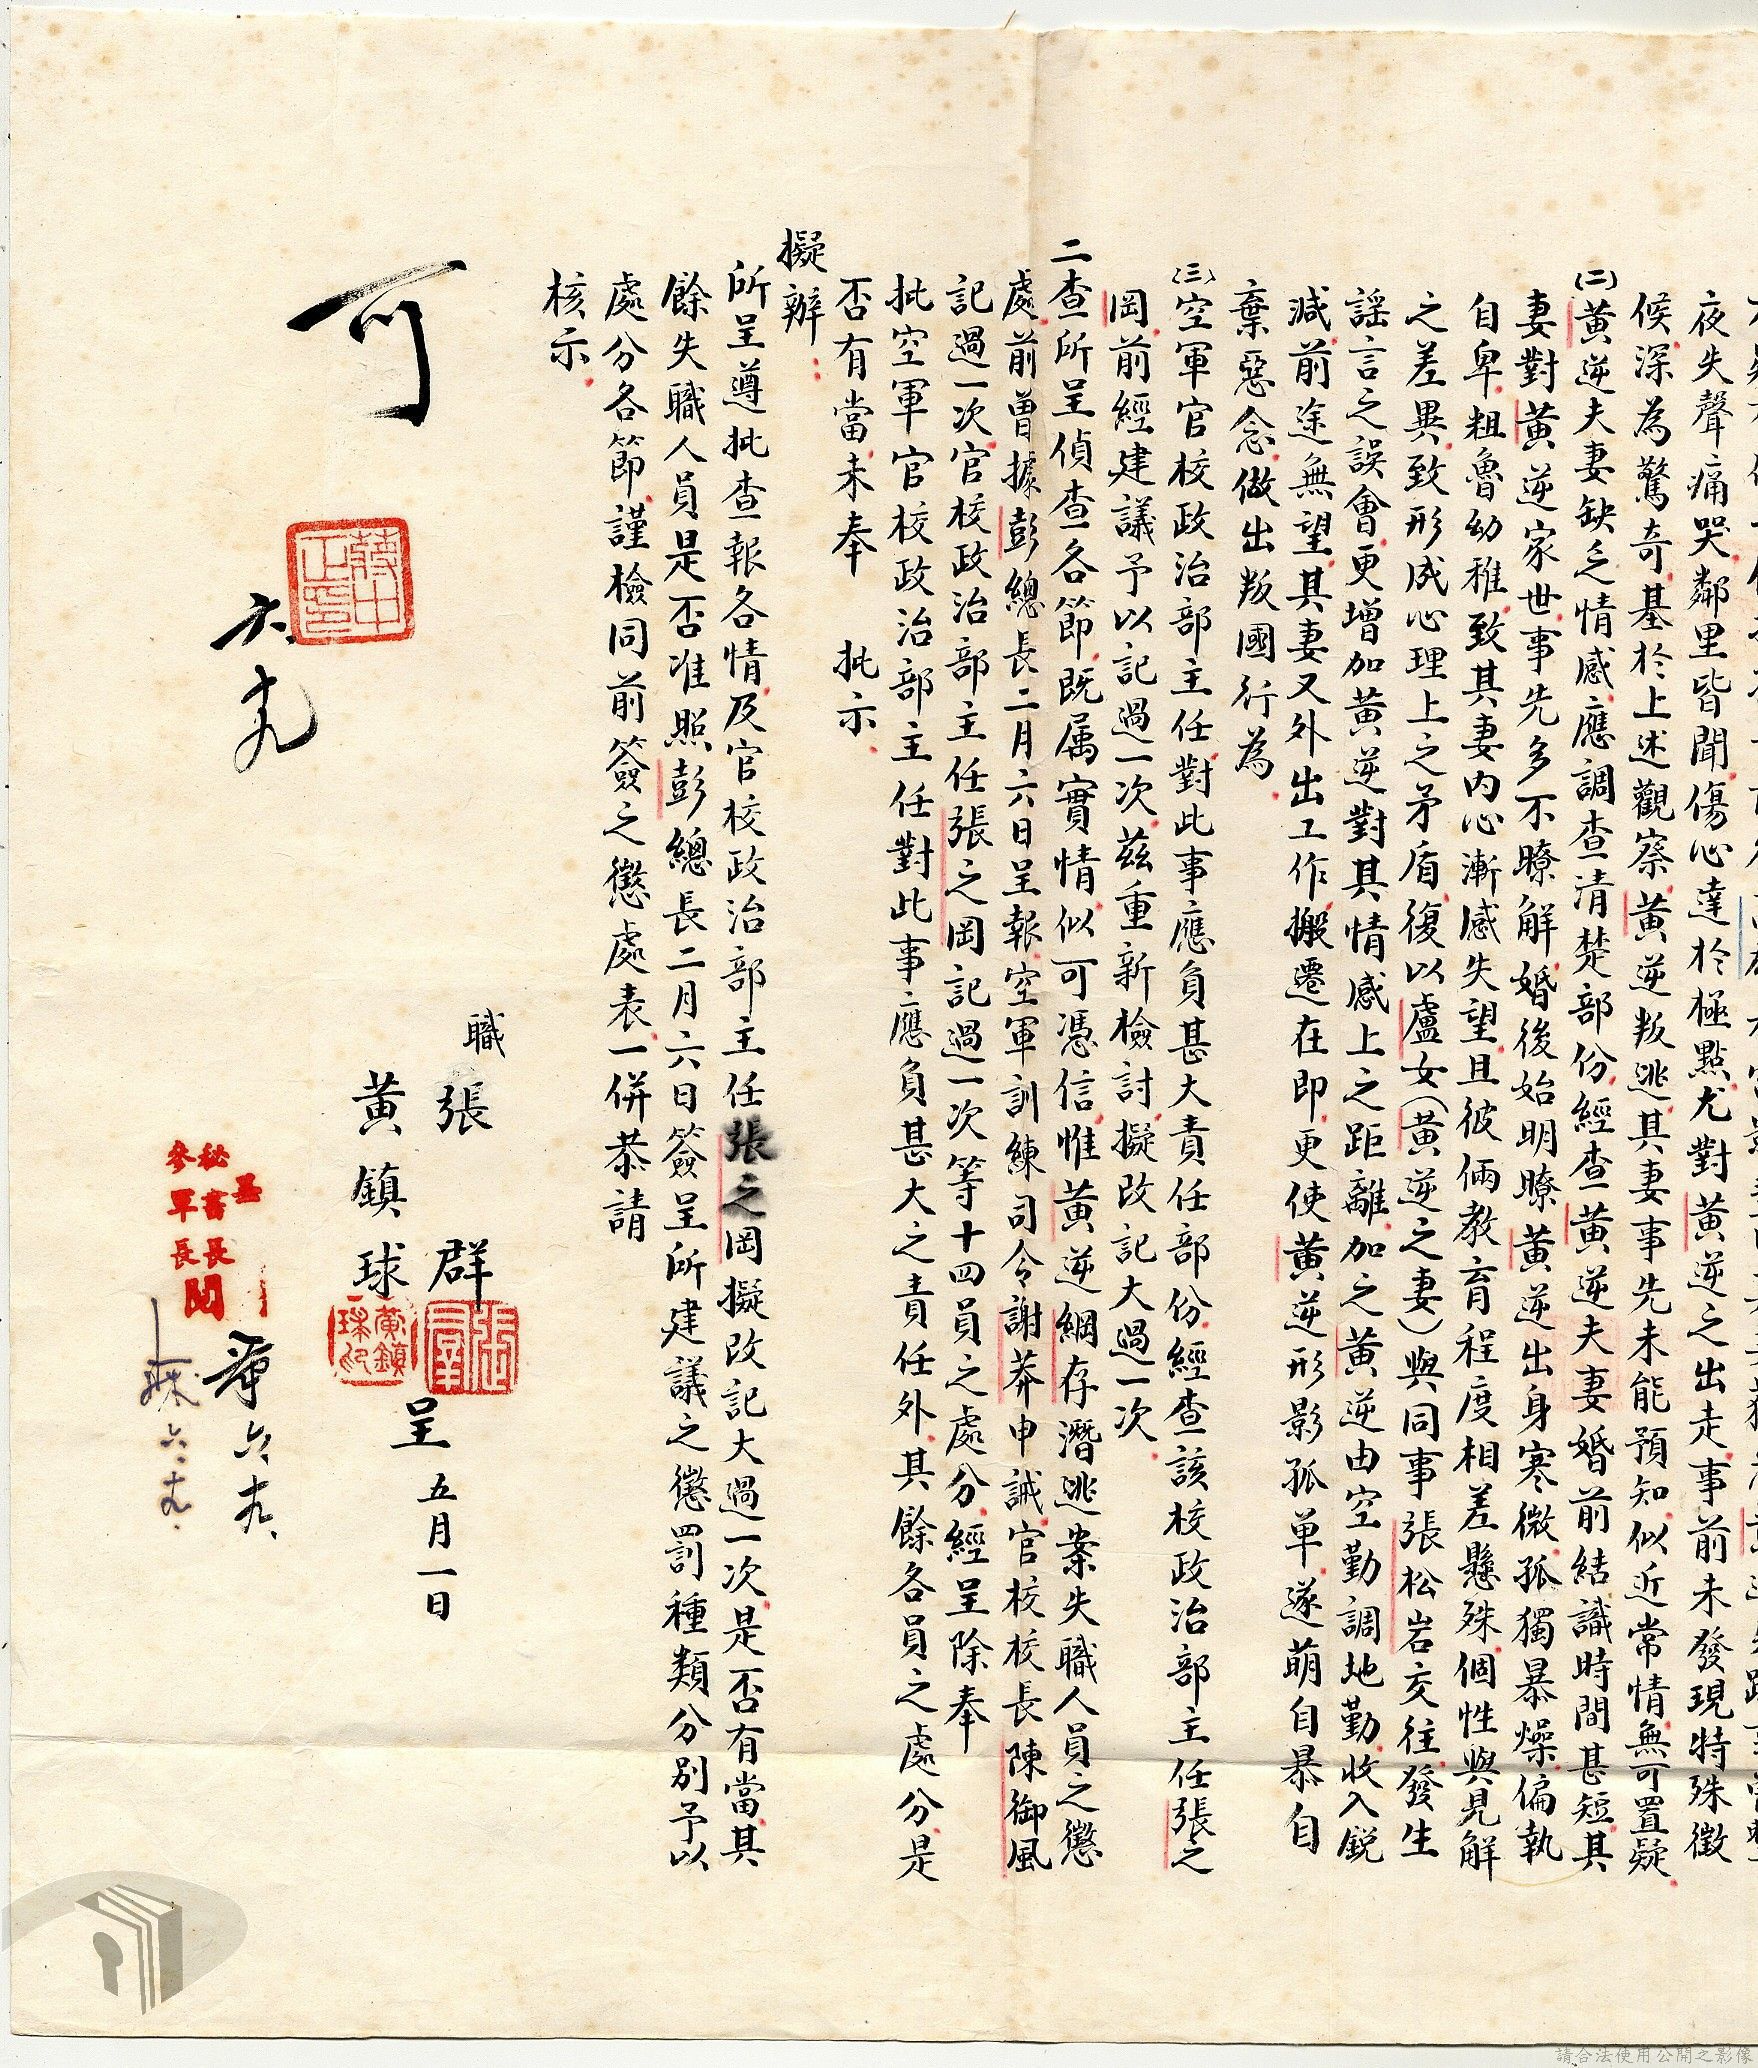 夜失聲痛哭鄰里皆聞傷心達於極點尤對黃逆之出走事前未發現特殊徵
候深為驚奇基於上述觀察黃逆叛逃其妻事先未能預知似近常情無可置疑
(二)黃逆夫妻缺乏情感應調查清楚部份經查黃逆夫妻婚前結識時間甚短其
妻對黃逆家世事先多不瞭解婚後始明瞭黃逆出身寒微孤獨暴燥偏執
自卑粗魯幼稚致其妻內心漸感失望且彼倆教育程度相差懸殊個性與見解
之差異致形成心理上之矛盾復以盧女(黃逆之妻)與同事張松岩交往發生
謠言之誤會更增加黃逆對其情感上之距離加之黃逆由空勤調地勤收入銳
減前途無望其妻又外出工作搬遷在即更使黃逆形影孤單遂萌自暴自
棄惡念做出叛國行為
(三)空軍官校政治部主任對此事應負甚大責任部份經查該校政治部主任張之
岡前經建議予以記過一次茲重新檢討擬改記大過一次
二查所呈偵查各節既屬實情似可憑信惟黃逆綱存潛逃案失職人員之懲
處前曾據彭總長二月六日呈報空軍訓練司令謝莽申誡官校校長陳御風
記過一次官校政治部主任張之岡記過一次等十四員之處分經呈除奉
批空軍官校政治部主任對此事應負甚大之責任外其餘各員之處分是
否有當未奉 批示
擬辦
所呈遵批查報各情及官校政治部主任張之岡擬改記大過一次是否有當其
餘失職人員是否准照彭總長二月六日簽呈所建議之懲罰種類分別予以
處分各節謹檢同前簽之懲處表一併恭請
核示
職 張群
黃鎮球
呈 五月一日
張群
黃鎮球印
可
蔣中正印
六
秘書長
參軍長
閱
六
請合法使用公開之影像